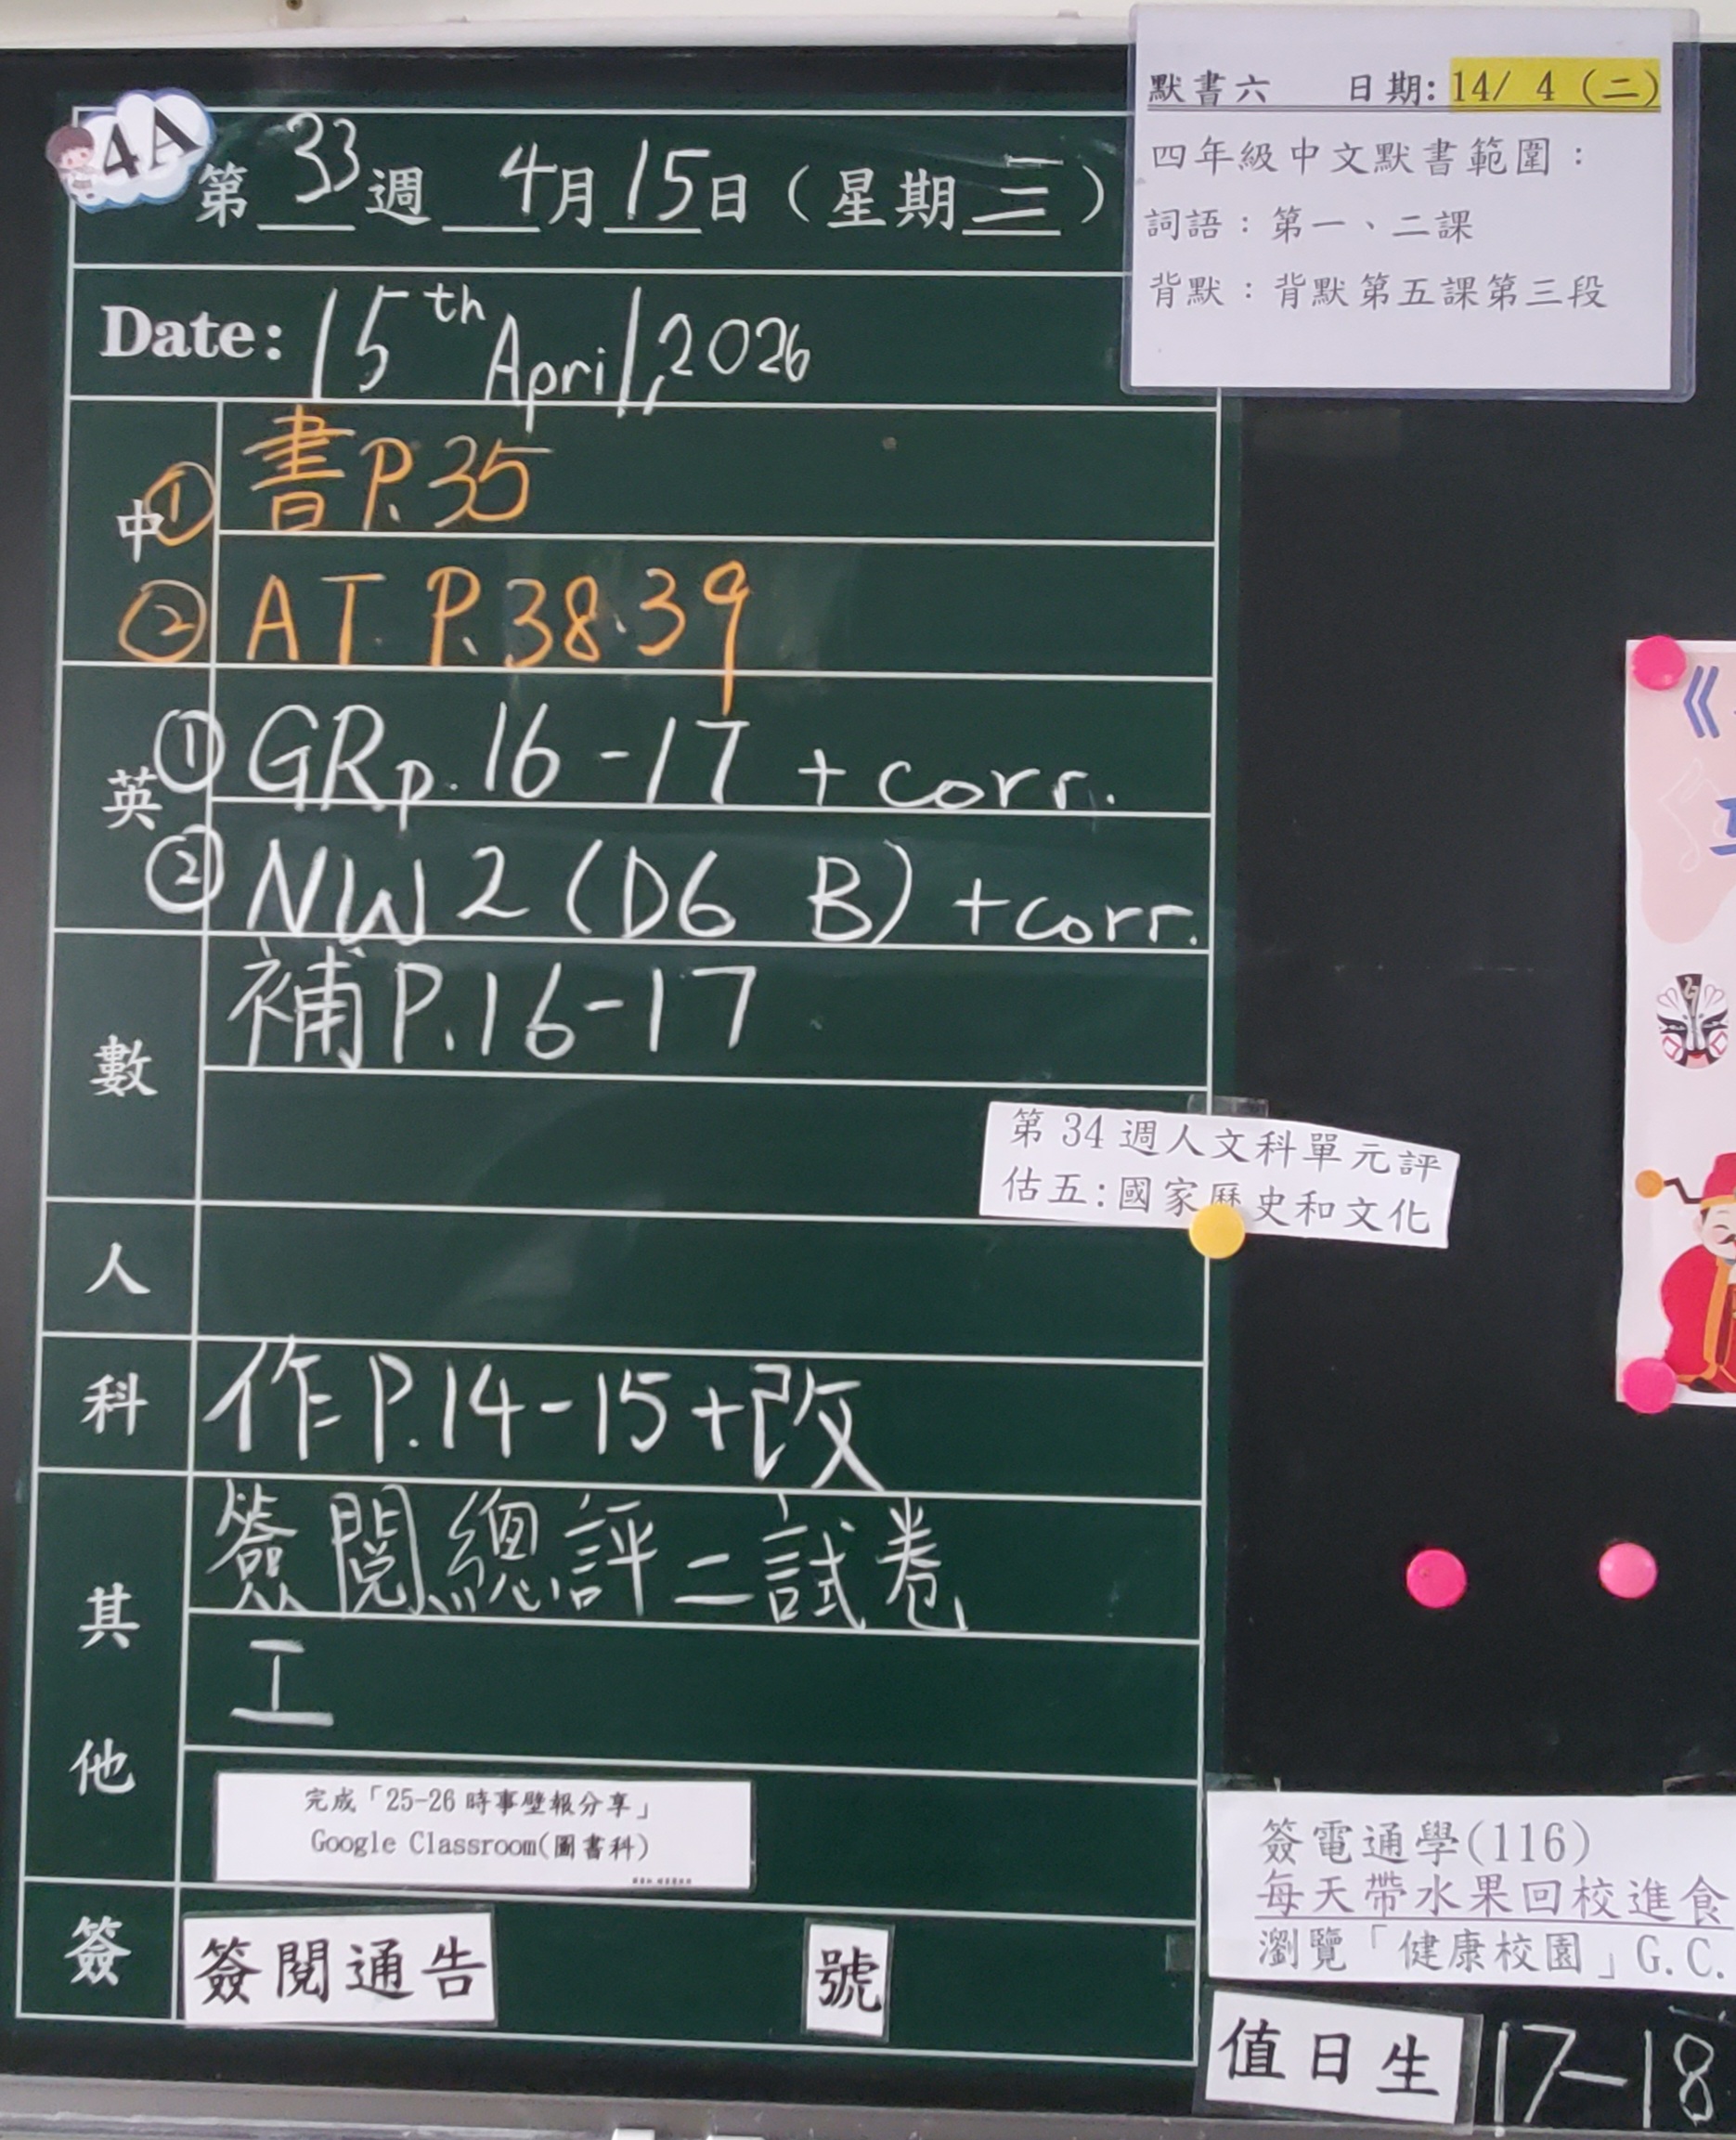 4A
第33週 4月15日（星期三）
Date: 15th April, 2026
默書六 日期: 14/ 4 (二)
四年級中文默書範圍：
詞語：第一、二課
背默：背默第五課第三段
中
① 書P.35
② AT P.38.39
英
① GRp.16-17 + corr.
② NW2 (D6 B) + corr.
數
補P.16-17
第34週人文科單元評
估五:國家歷史和文化
人
科
作P.14-15+改
其他
簽閱總評二試卷
工
完成「25-26 時事壁報分享」
Google Classroom(圖書科)
簽
簽閱通告 號
簽電通學(116)
每天帶水果回校進食
瀏覽「健康校園」G.C.
值日生 17-18